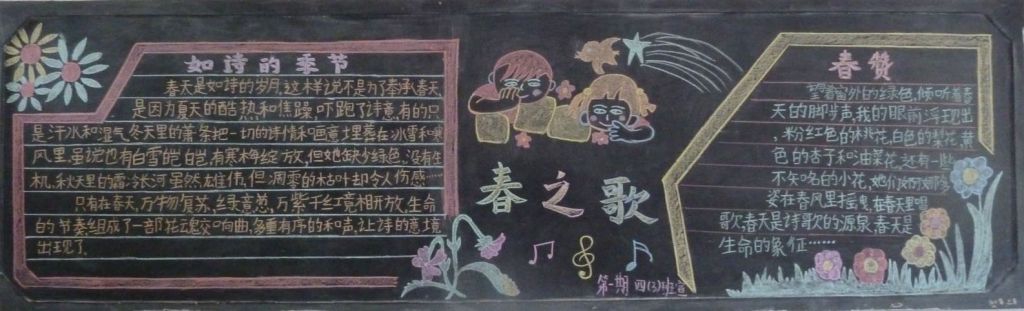 如诗的季节
春天是如诗的岁月,这样说不是为了奉承春天,
是因为夏天的酷热和焦躁,吓跑了诗意,有的只
是汗水和湿气,冬天里的萧条把一切的诗情和画意埋葬在冰雪和寒
风里,虽说也有白雪皑皑,有寒梅绽放,但她缺少绿色,没有生
机,秋天里的霜冷长河虽然雄伟,但凋零的枯叶却令人伤感……
只有在春天,万物复苏,绿意葱,万紫千红竞相开放,生命
的节奏组成了一部花魂交响曲,多重有序的和声,让诗的意境
出现了,
春之歌
第一期 四(3)班宣
春赞
窗外的绿色,倾听着春
天的脚步声,我的眼前浮现出
,粉红色的桃花,白色的梨花,黄
色的杏子和油菜花,还有一些
不知名的小花,她们
姿在春风里摇曳,在春天里唱
歌,春天是诗歌的源泉,春天是
生命的象征……